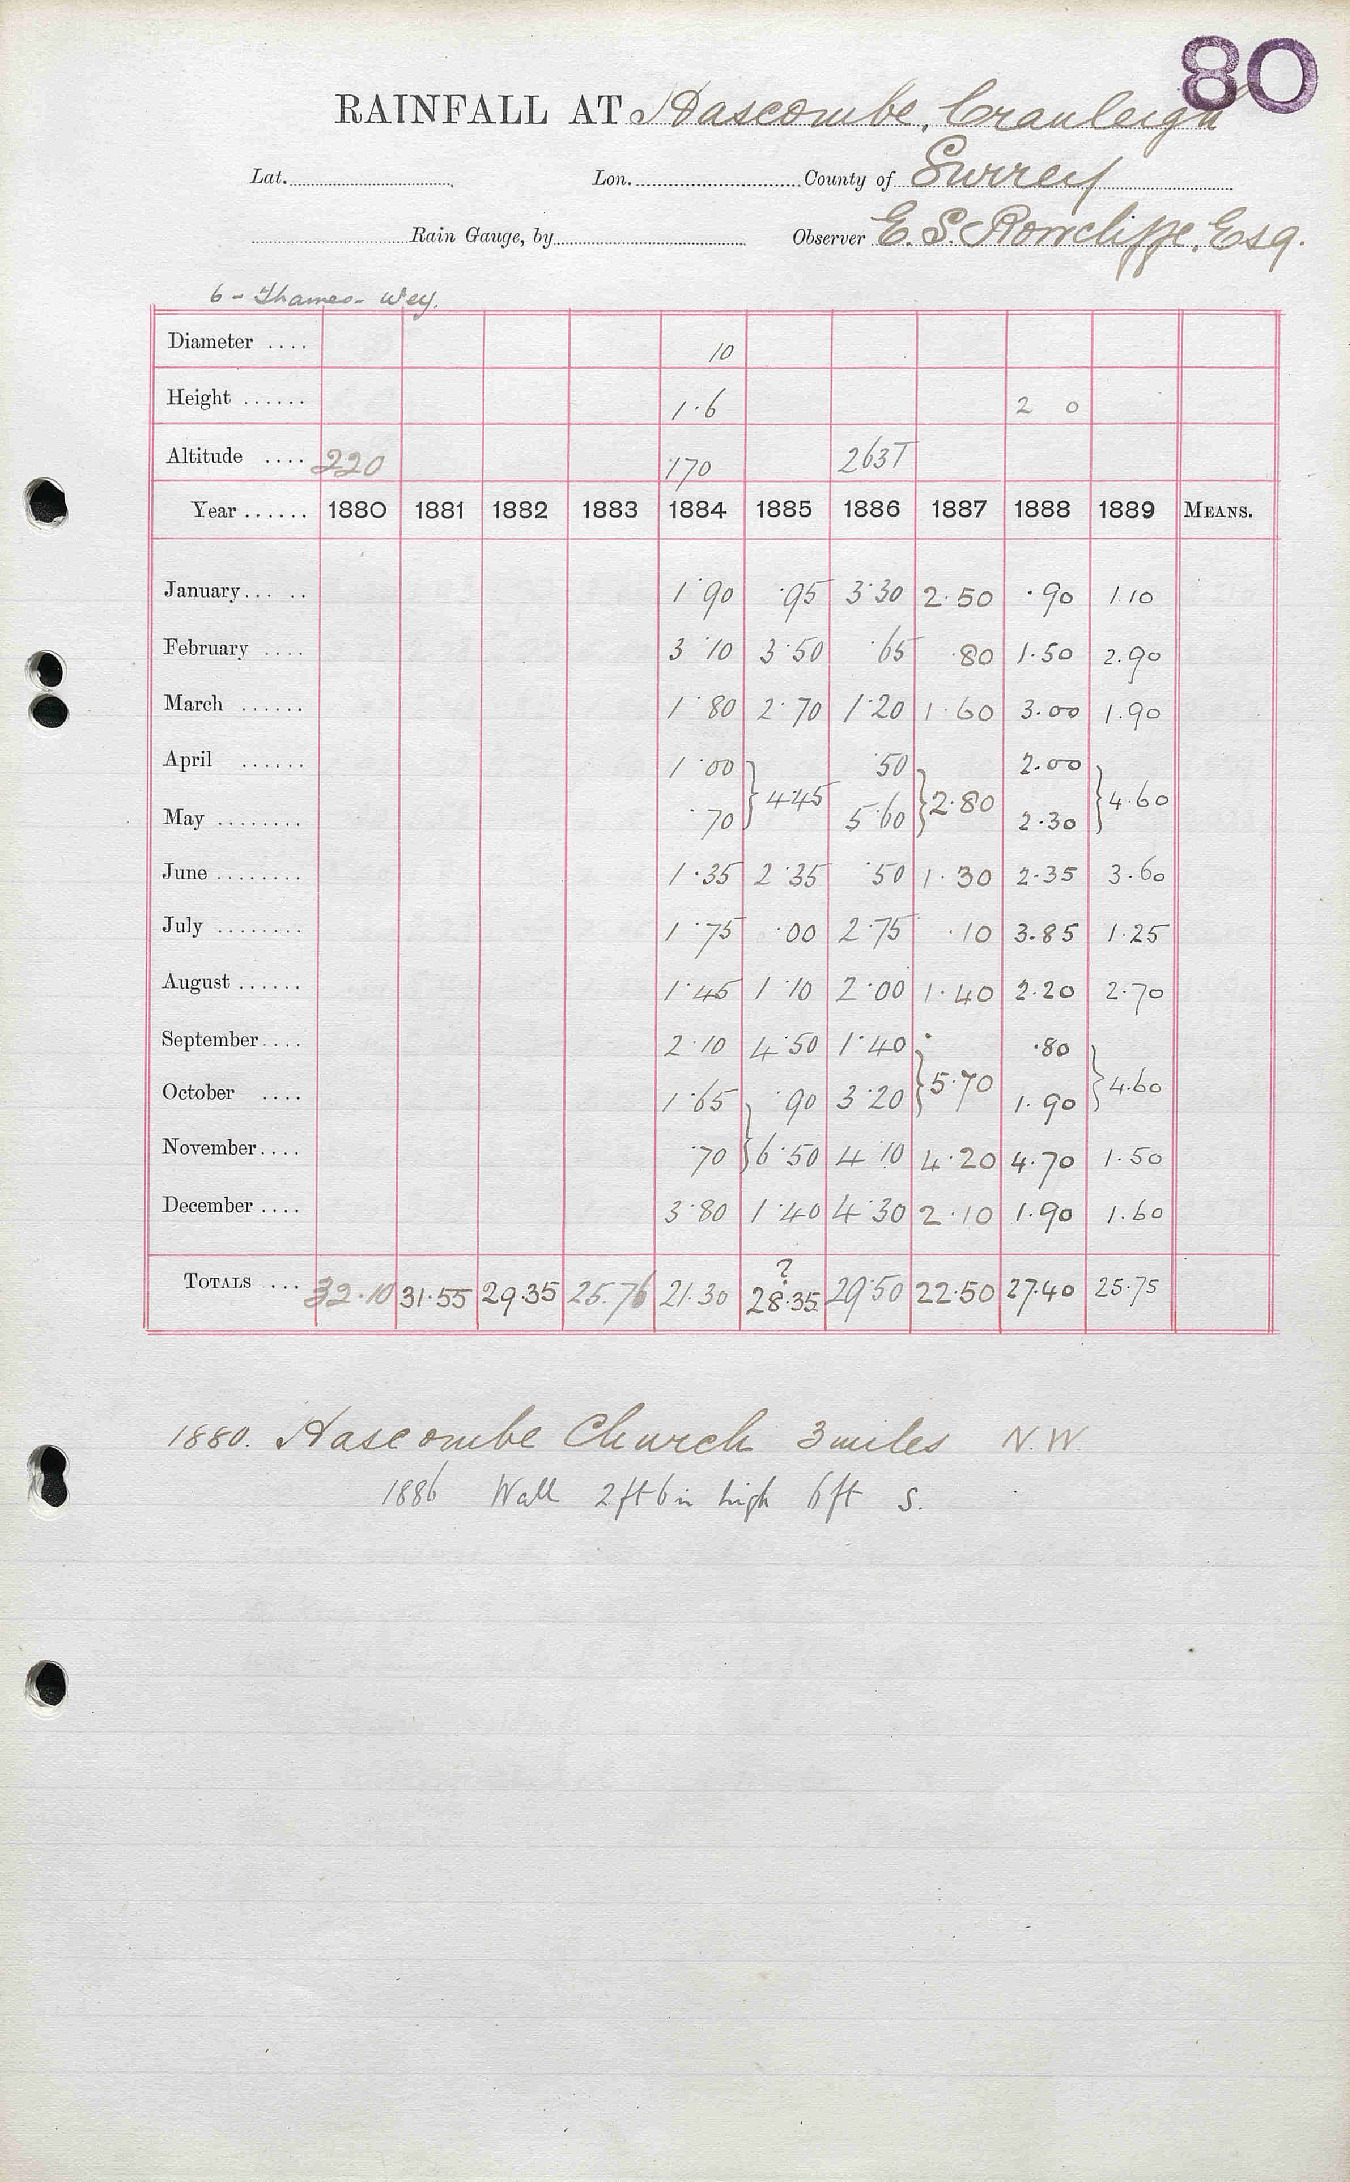 80
RAINFALL AT Hascombe, Cranleigh
Lat. Lon. County of Surrey
Rain Gauge, by Observer E. S. Rowcliffe, Esq.
6 - Thames - Wey.
Diameter .... 10
Height ...... 1·6 2 0
Altitude .... 220 170 263T
Year ...... 1880 1881 1882 1883 1884 1885 1886 1887 1888 1889 MEANS.
January... .. 1·90 ·95 3·30 2·50 ·90 1·10
February .... 3·10 3·50 ·65 ·80 1·50 2·90
March ...... 1·80 2·70 1·20 1·60 3·00 1·90
April ...... 1·00 ·50 2·00
} 4·45 } 2·80 } 4·60
May ........ ·70 5·60 2·30
June ........ 1·35 2·35 ·50 1·30 2·35 3·60
July ........ 1·75 ·00 2·75 ·10 3·85 1·25
August ...... 1·45 1·10 2·00 1·40 2·20 2·70
September.... 2·10 4·50 1·40 ·80
} 5·70 } 4·60
October .... 1·65 ·90 3·20 1·90
November.... ·70 } 6·50 4·10 4·20 4·70 1·50
December .... 3·80 1·40 4·30 2·10 1·90 1·60
?
TOTALS .... 32·10 31·55 29·35 25·76 21·30 28·35 29·50 22·50 27·40 25·75
1880. Hascombe Church 3 miles N.W.
1886 Wall 2ft 6in high 6ft S.